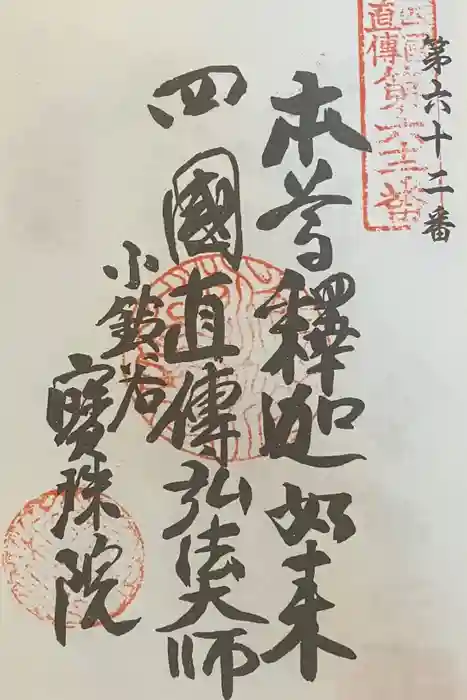 第六十二番
四國直傳第六十二番
本尊釋迦如来
四國直傳弘法大師
小鈴谷
寶珠院